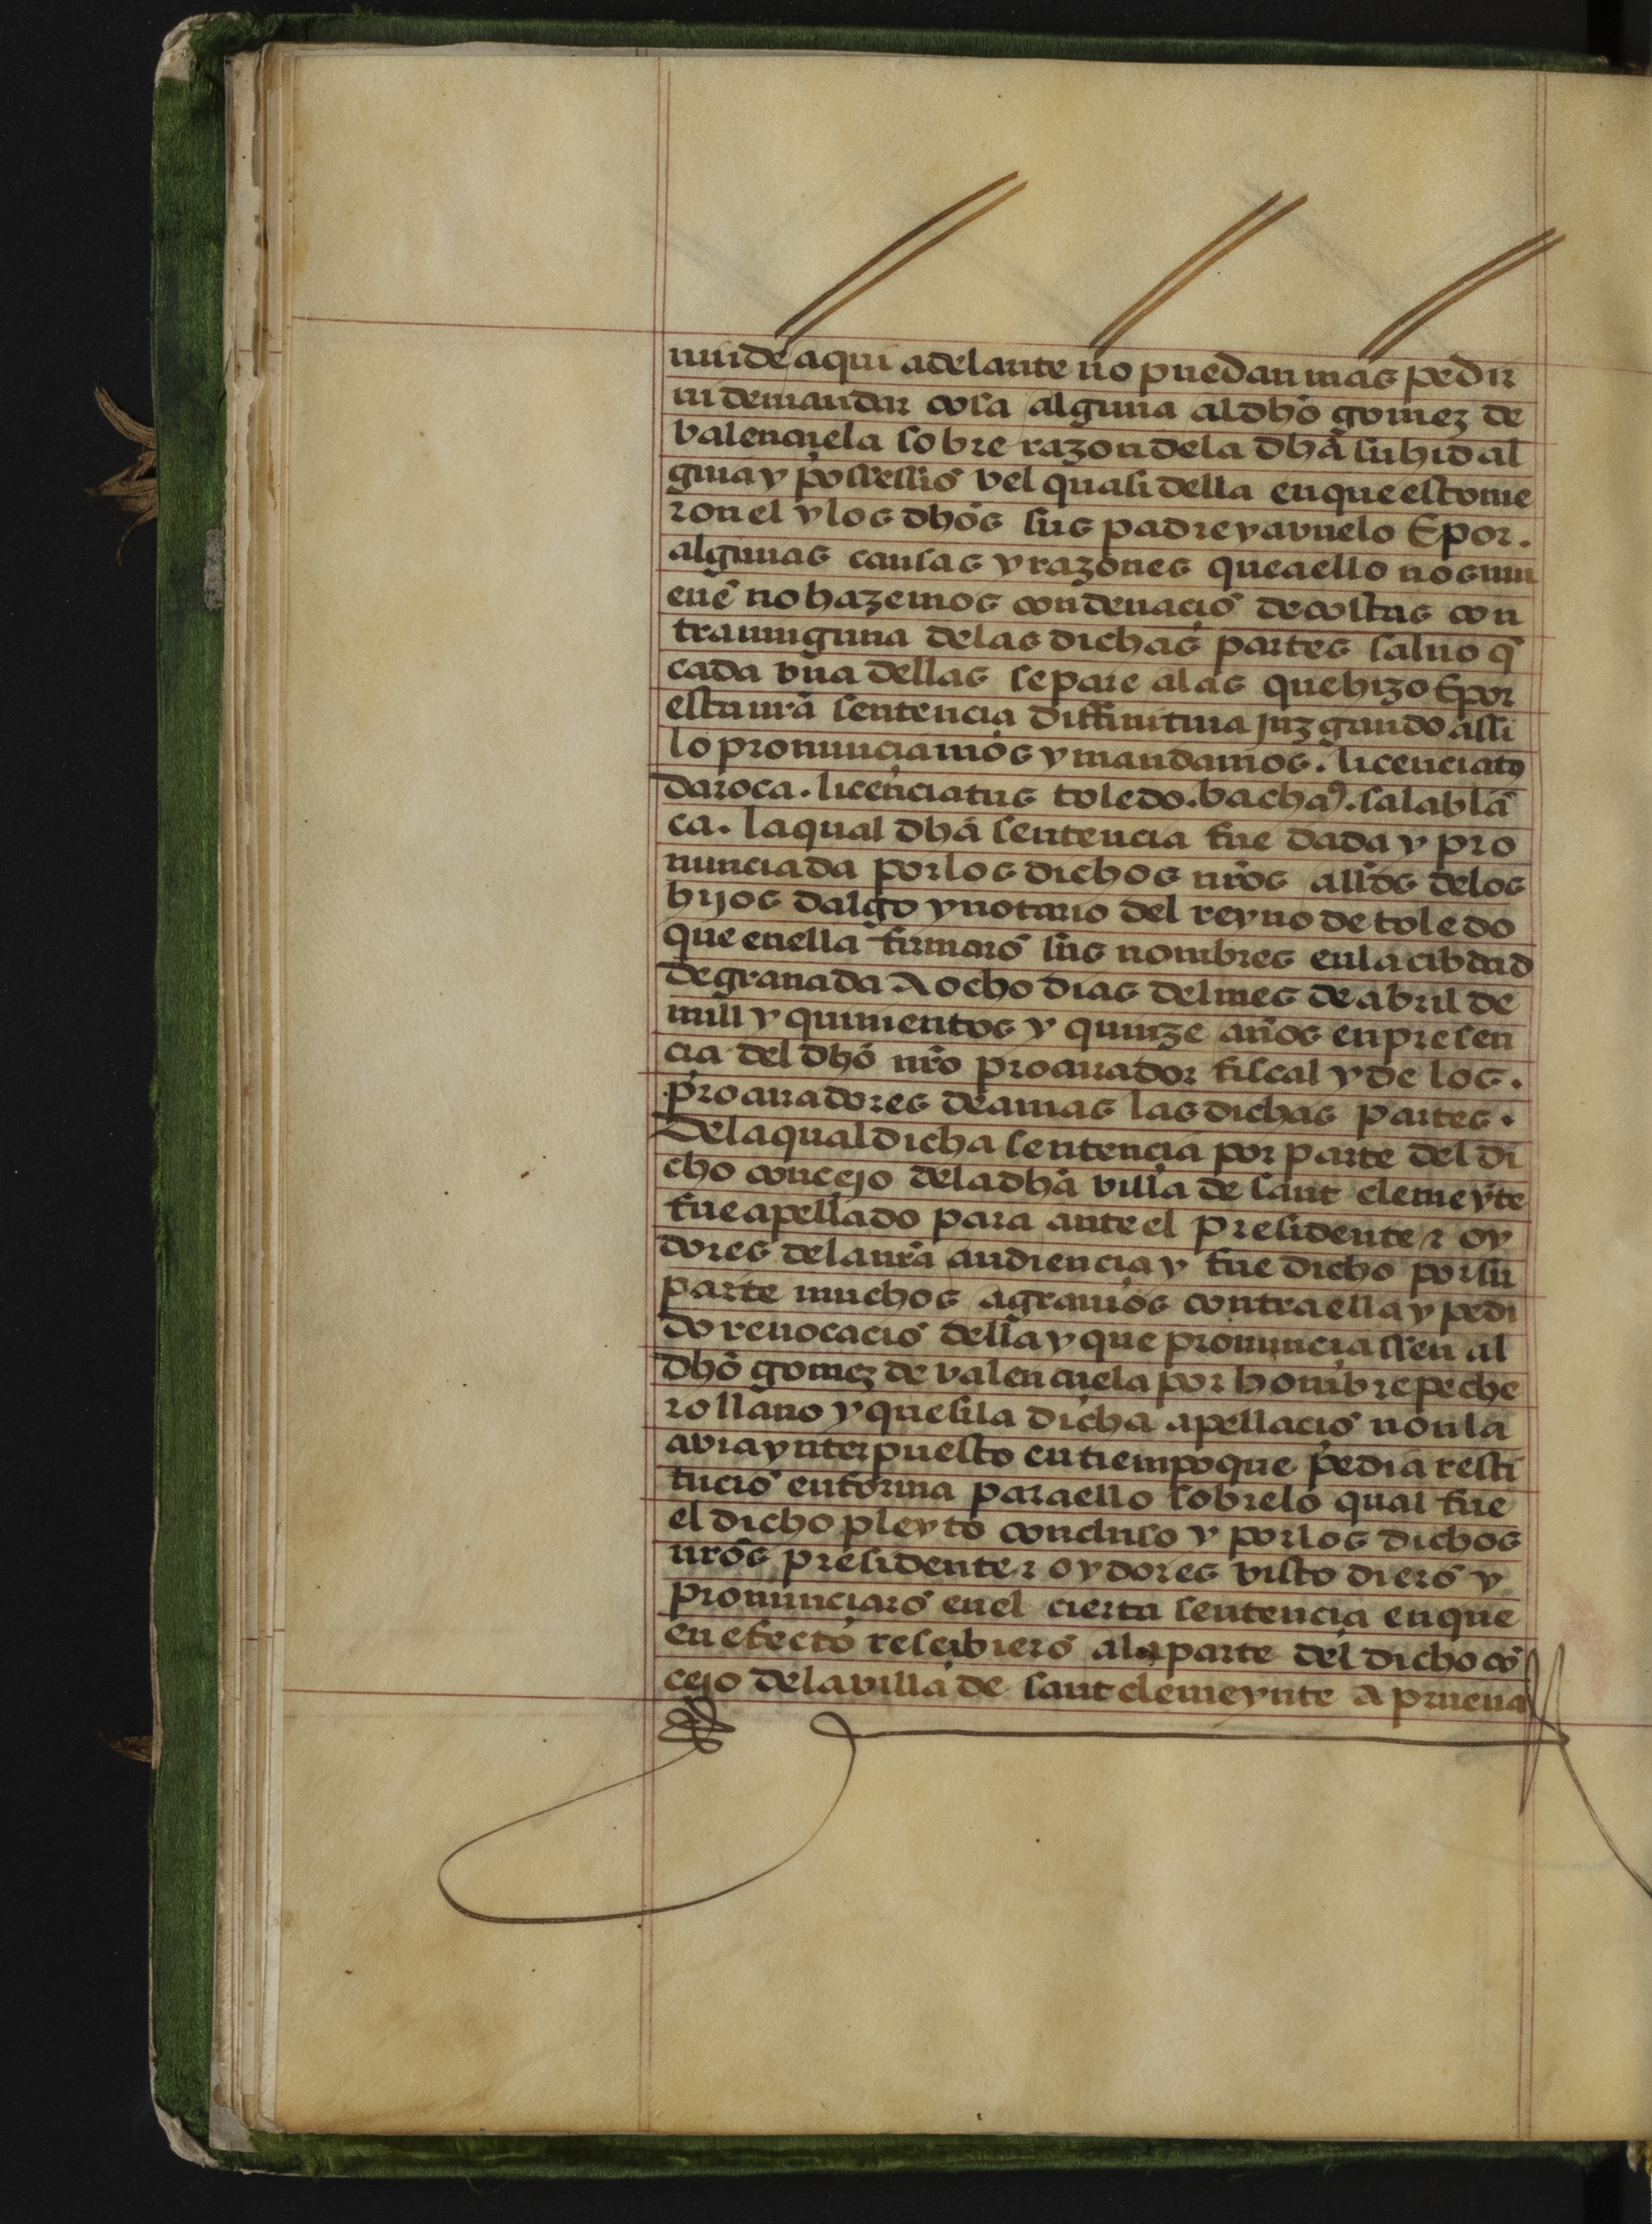 nin de aqui adelante no puedan mas pedir
ni demandar cosa alguna al dho gomez de
valençuela sobre razon dela dha su hidal
guia y possessiō vel quasi della en que estouie
ron el y los dhos sus padre y avuelo E por.
algunas causas y razones que a ello nos mu
euē no hazemos condenaciō de costas con
tra ninguna delas dichas partes saluo q̄
cada vna dellas se pare alas que hizo E por
esta nrā sentencia diffinitiua juzgando assi
lo pronunciamos y mandamos. licenciatꝰ
daroca. licenciatus toledo. bachaꝰ. salablā
ca. la qual dha sentencia fue dada y pro
nunciada por los dichos nrōs allds delos
hijos dalgo y notario del reyno de toledo
que enella firmarō sus nombres en la cibdad
de granada A ocho dias del mes de abril de
mill y quinientos y quinze años en presen
cia del dho nrō procurador fiscal y de los.
procuradores de amas las dichas partes.
Dela qual dicha sentencia por parte del di
cho concejo dela dha villa de sant clemeyte
fue apellado para ante el presidente ⁊ oy
dores dela nrā audiencia y fue dicho por su
parte muchos agrauios contra ella y pedi
do reuocaciō della y que pronunciassen al
dhō gomez de valençuela por hombre peche
ro llano y que si la dicha apellaciō non la
avia ynterpuesto en tiempo que pedia resti
tuciō en forma para ello sobre lo qual fue
el dicho pleyto concluso y por los dichos
nrōs presidente ⁊ oydores visto dierō y
pronunciarō enel cierta sentencia en que
en efecto rescibierō a la parte del dicho cō
cejo dela villa de sant clemeynte a prueua